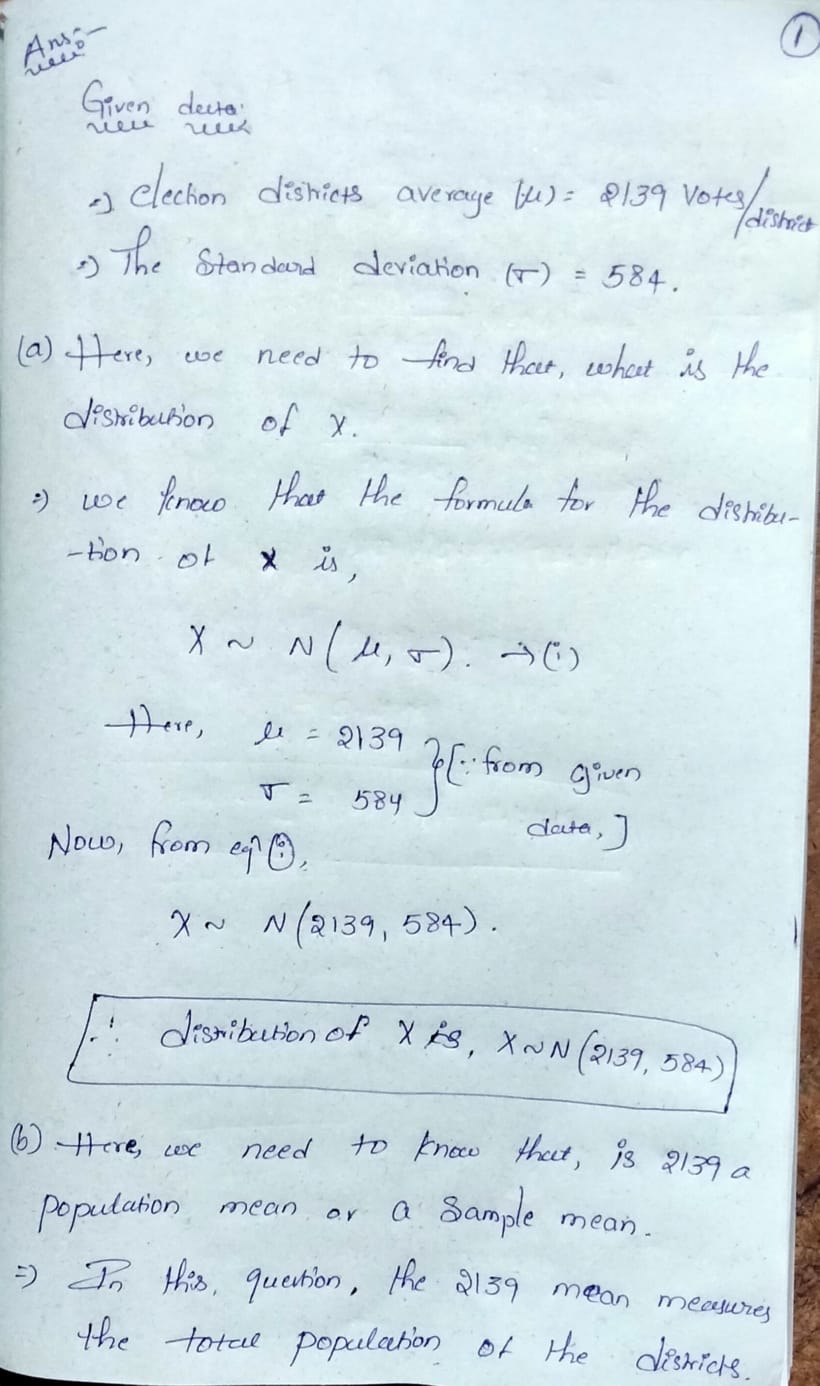 1
Ans:-
Given data:
=) Election districts average (μ) = 2139 Votes/district
=) The Standard deviation (σ) = 584.
(a) Here, we need to find that, what is the
distribution of X.
=) we know that the formula for the distribu-
-tion of X is,
X ~ N(μ, σ). → (i)
Here, μ = 2139
σ = 584 } [∵ from given
data,]
Now, from eqn (i),
X ~ N(2139, 584).
∴ distribution of X is, X ~ N(2139, 584)
(b) Here, we need to know that, is 2139 a
population mean or a Sample mean.
=) In this, question, the 2139 mean measures
the total population of the districts.